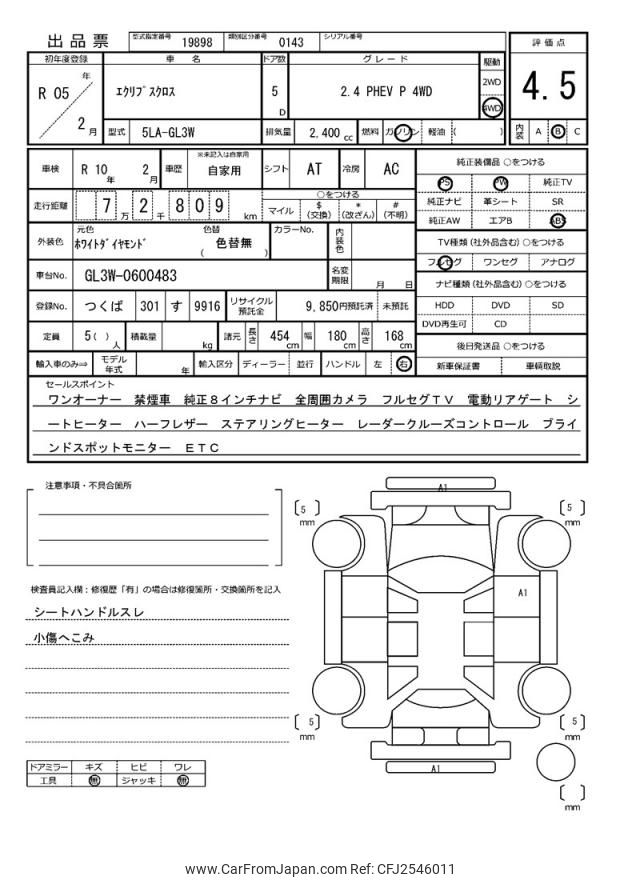 出品票 型式指定番号 19898 類別区分番号 0143 シリアル番号
初年度登録 車名 ドア数 グレード 駆動 評価点
R 05 年 2 月 エクリプスクロス 5 D 2.4 PHEV P 4WD 2WD 4WD 4.5
型式 5LA-GL3W 排気量 2,400 cc 燃料 ガソリン 軽油 ( ) 内装 A B C
車検 R 10 年 2 月 車歴 ※未記入は自家用 自家用 シフト AT 冷房 AC
純正装備品 ○をつける
PS PW 純正TV
走行距離 7 万 2 千 8 0 9 km ○をつける マイル $ (交換) * (改ざん) # (不明)
純正ナビ 革シート SR
純正AW エアB ABS
外装色 元色 ホワイトダイヤモンド 色替 ( 色替無 ) カラーNo. 内装色
TV種類 (社外品含む) ○をつける
フルセグ ワンセグ アナログ
車台No. GL3W-0600483 名変期限 月 日
ナビ種類 (社外品含む) ○をつける
登録No. つくば 301 す 9916 リサイクル預託金 9,850円預託済 未預託
HDD DVD SD
DVD再生可 CD
定員 5( ) 人 積載量 kg 諸元 長さ 454 cm 幅 180 cm 高さ 168 cm
後日発送品 ○をつける
輸入車のみ⇒ モデル年式 年 輸入区分 ディーラー 並行 ハンドル 左 右
新車保証書 車輌取説
セールスポイント
ワンオーナー 禁煙車 純正8インチナビ 全周囲カメラ フルセグTV 電動リアゲート シ
ートヒーター ハーフレザー ステアリングヒーター レーダークルーズコントロール ブライ
ンドスポットモニター ETC
注意事項・不具合箇所
検査員記入欄：修復歴「有」の場合は修復箇所・交換箇所を記入
シートハンドルスレ
小傷へこみ
A1
5 mm
5 mm
A1
5 mm
5 mm
A1
mm
ドアミラー キズ ヒビ ワレ
工具 無 ジャッキ 無
www.CarFromJapan.com Ref: CFJ2546011